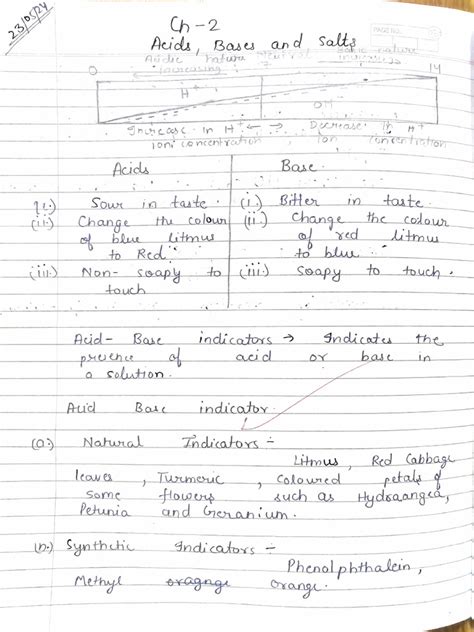 23/05/24
Ch-2
Acids, Bases and Salts
PAGE NO.
Acidic nature Neutral Basic nature
0 increasing 7 increases 14
H+
OH-
Increase in H+ ← → Decrease in H+
ion concentration ion concentration
Acids Base
1(i.) Sour in taste. (i.) Bitter in taste.
(ii.) Change the colour (ii.) Change the colour
of blue litmus of red litmus
to Red. to blue.
(iii.) Non-soapy to (iii.) Soapy to touch.
touch
Acid-Base indicators → Indicates the
presence of acid or base in
a solution.
Acid Base indicator.
(a.) Natural Indicators :-
Litmus, Red Cabbage
leaves, Turmeric, Coloured petals of
some flowers such as Hydraangea,
Petunia and Geranium.
(b.) Synthetic Indicators :-
Phenolphthalein,
Methyl oragnge orange.